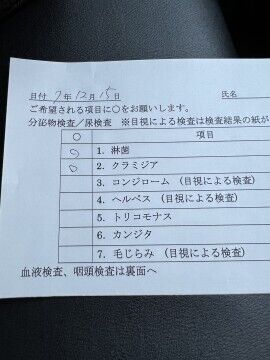 日付 7年 12月 15日 氏名
ご希望される項目に○をお願いします。
分泌物検査／尿検査 ※目視による検査は検査結果の紙が
○ 項目
○ 1. 淋菌
○ 2. クラミジア
3. コンジローム (目視による検査)
4. ヘルペス (目視による検査)
5. トリコモナス
6. カンジタ
7. 毛じらみ (目視による検査)
血液検査、咽頭検査は裏面へ